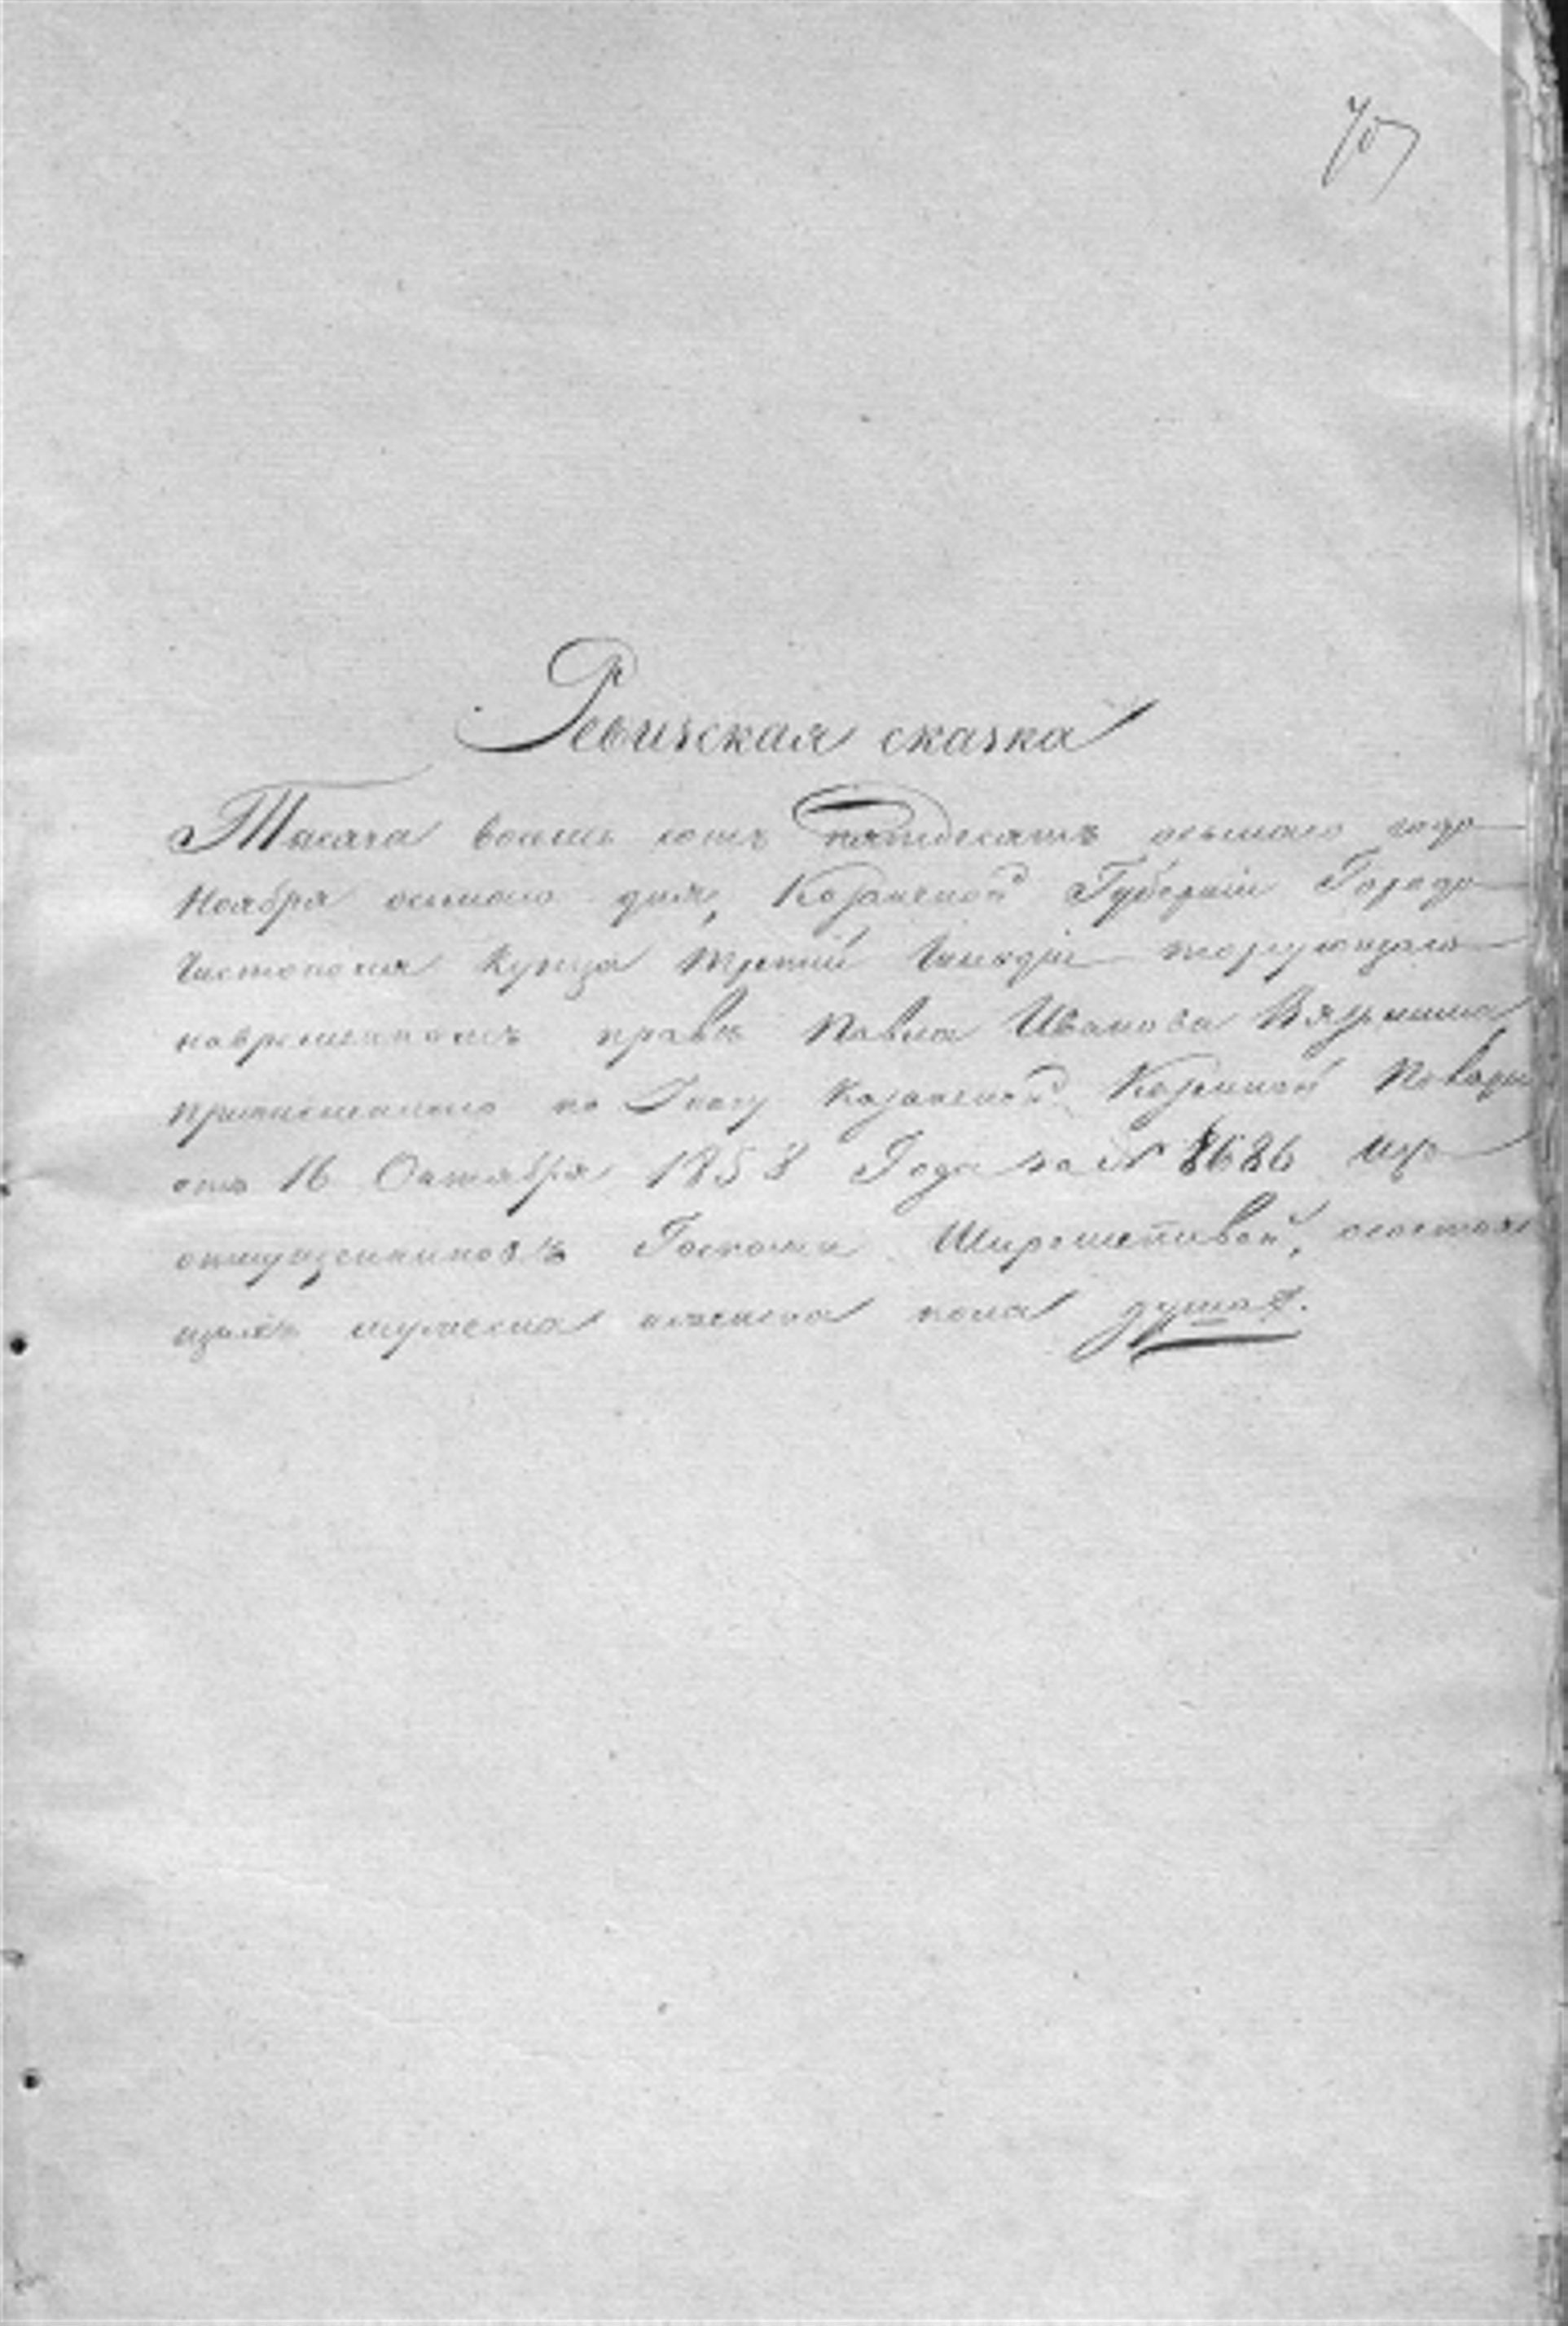 Ревизская сказка
Тысяча восемь сотъ пятьдесятъ осьмаго года
Ноября осьмаго дня, Казанской Губерніи Города
Чистополя Купца третій Гильдіи торгующаго
на временномъ правѣ Павла Ивановa
причисленнаго по Указу Казанской Казенной Палаты
отъ 16 Октября 1858 Года за № 8686 изъ
отпущенниковъ Госпожи о состоя
щихъ мужеска женска пола душах.